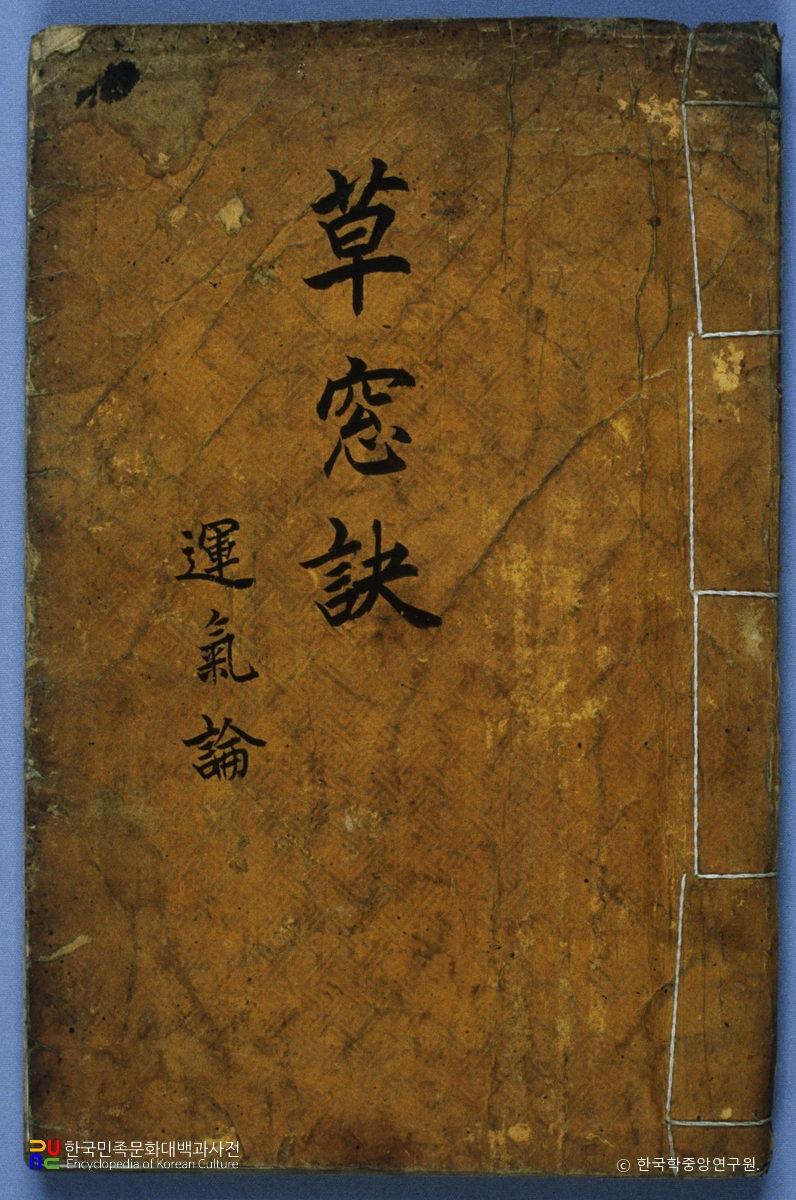 草窓訣
運氣論
한국민족문화대백과사전
Encyclopedia of Korean Culture
© 한국학중앙연구원.